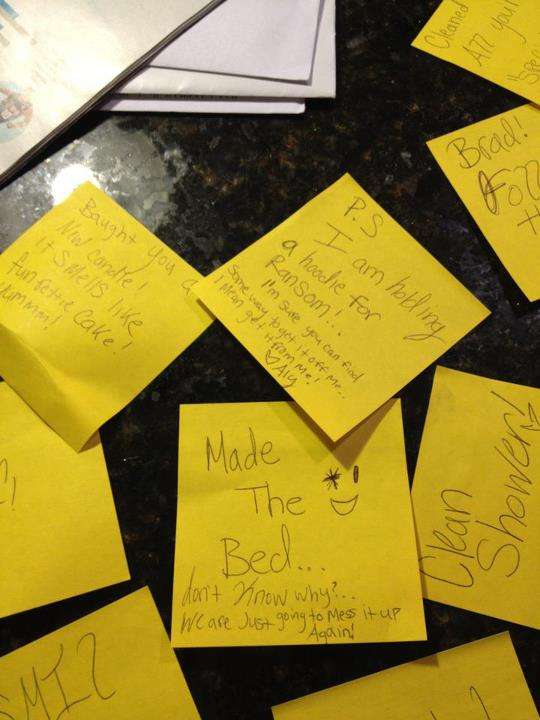 Cleaned
All your
Brad!
Foll
Baught you a
New candle!
it smells like
funfettie cake!
yummm!
P.S
I am holding
a hoodie for
Ransom!..
I'm sure you can find
some way to get it off me..
I mean get it from me!
Aly
Made
The
Bed...
don't know why?..
We are Just going to Mess it up
Again!
Clean
Shower!